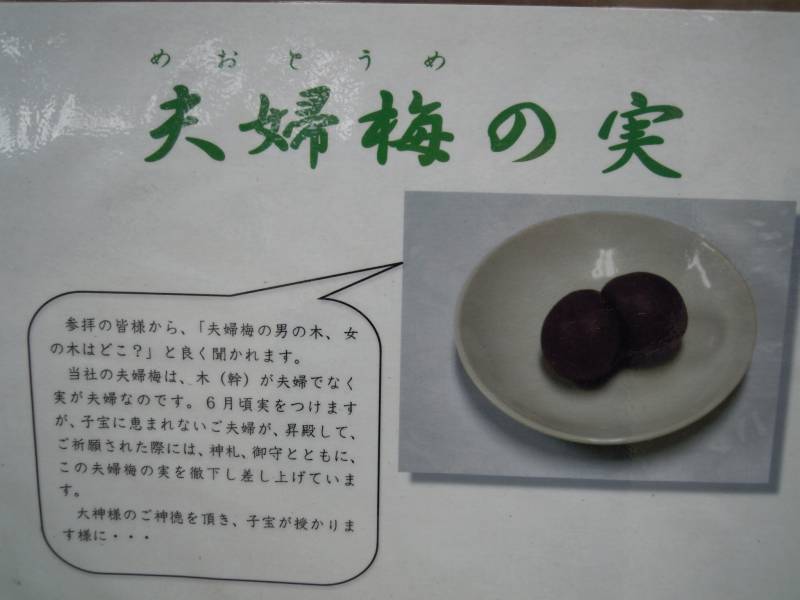 めおとうめ
夫婦梅の実
参拝の皆様から、「夫婦梅の男の木、女
の木はどこ？」と良く聞かれます。
当社の夫婦梅は、木（幹）が夫婦でなく
実が夫婦なのです。６月頃実をつけます
が、子宝に恵まれないご夫婦が、昇殿して、
ご祈願された際には、神札、御守とともに、
この夫婦梅の実を徹下し差し上げていま
す。
大神様のご神徳を頂き、子宝が授かりま
す様に・・・